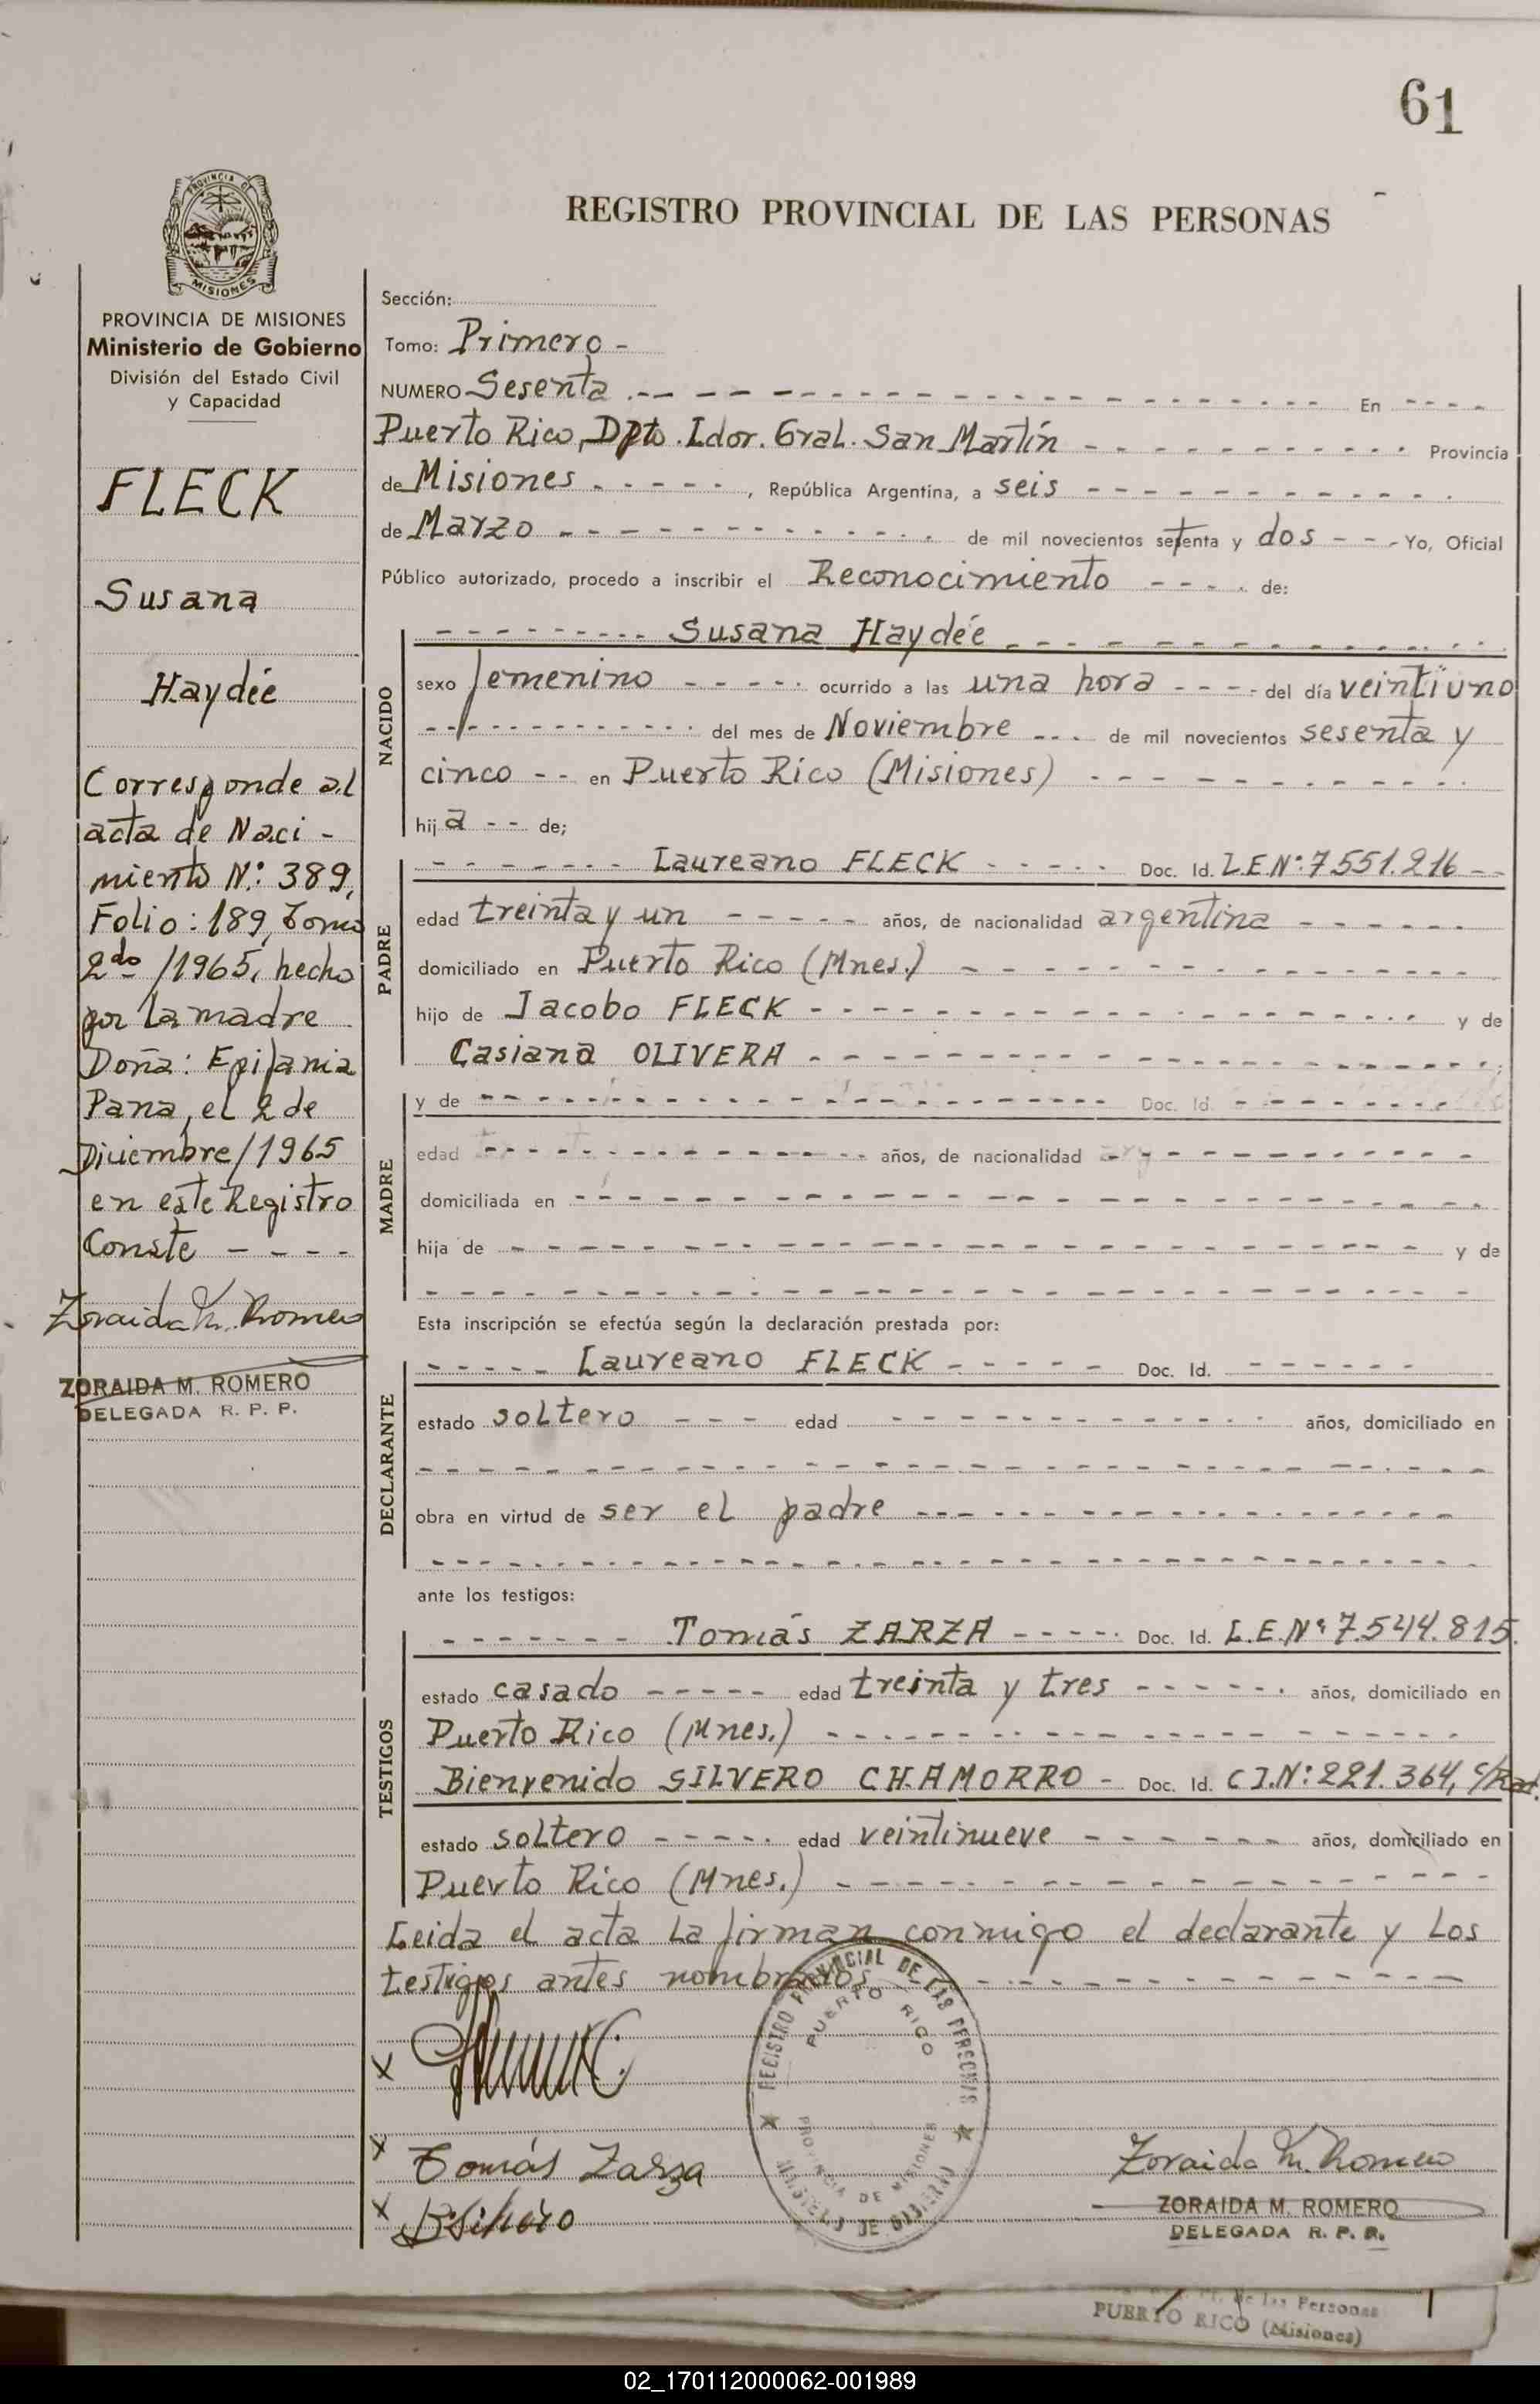 61
REGISTRO PROVINCIAL DE LAS PERSONAS
PROVINCIA DE
MISIONES
PROVINCIA DE MISIONES
Ministerio de Gobierno
División del Estado Civil
y Capacidad
FLECK
Susana
Haydée
Corresponde al
acta de Naci -
miento N°: 389,
Folio: 189, Tomo
2do /1965, hecho
por la madre
Doña: Epifania
Pana, el 2 de
Diciembre/1965
en este Registro
Conste - - - -
Zoraida M. Romero
ZORAIDA M. ROMERO
DELEGADA R. P. P.
Sección:
Tomo: Primero -
NUMERO Sesenta - - - En - - - -
Puerto Rico, Dpto. Ldor. Gral. San Martín - - - Provincia
de Misiones - - - - -, República Argentina, a seis - - -
de Marzo - - - de mil novecientos setenta y dos - - - Yo, Oficial
Público autorizado, procedo a inscribir el Reconocimiento - - - - de:
NACIDO
- - - Susana Haydée - - -
sexo femenino - - - - - ocurrido a las una hora - - - - del día veintiuno
- - - del mes de Noviembre - - - de mil novecientos sesenta y
cinco - - en Puerto Rico (Misiones) - - -
hij a - - de;
PADRE
- - - Laureano FLECK - - - Doc. Id. L.E.N°: 7551.216 - -
edad treinta y un - - - - - años, de nacionalidad argentina - - -
domiciliado en Puerto Rico (Mnes.) - - -
hijo de Jacobo FLECK - - - y de
Casiana OLIVERA - - - ;
MADRE
y de - - - Doc. Id. - - -
edad - - - años, de nacionalidad - - -
domiciliada en - - -
hija de - - - y de
- - -
Esta inscripción se efectúa según la declaración prestada por:
DECLARANTE
- - - - - Laureano FLECK - - - - - Doc. Id. - - - - - -
estado soltero - - - edad - - - años, domiciliado en
- - -
obra en virtud de ser el padre - - -
- - -
ante los testigos:
TESTIGOS
- - - Tomás ZARZA - - - - - Doc. Id. L.E.N° 7.544.815.
estado casado - - - - - edad treinta y tres - - - - - - años, domiciliado en
Puerto Rico (Mnes.) - - -
Bienvenido SILVERO CHAMORRO - Doc. Id. C.I.N°: 221.364, c/Rad.
estado soltero - - - - - edad veintinueve - - - años, domiciliado en
Puerto Rico (Mnes.) - - -
Leida el acta la firman conmigo el declarante y los
testigos antes nombrados - - -
REGISTRO PROVINCIAL DE LAS PERSONAS
PUERTO RICO
PROVINCIA DE MISIONES
MINISTERIO DE GOBIERNO
x
x Tomás Zarza
x B Silvero
Zoraida M. Romero
ZORAIDA M. ROMERO
DELEGADA R. P. P.
de las Personas
PUERTO RICO (Misiones)
02_170112000062-001989